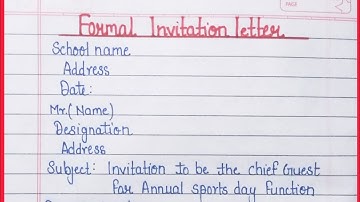 PAGE
Formal Invitation letter
School name
Address
Date:
Mr.(Name)
Designation
Address
Subject: Invitation to be the chief Guest
for Annual sports day function